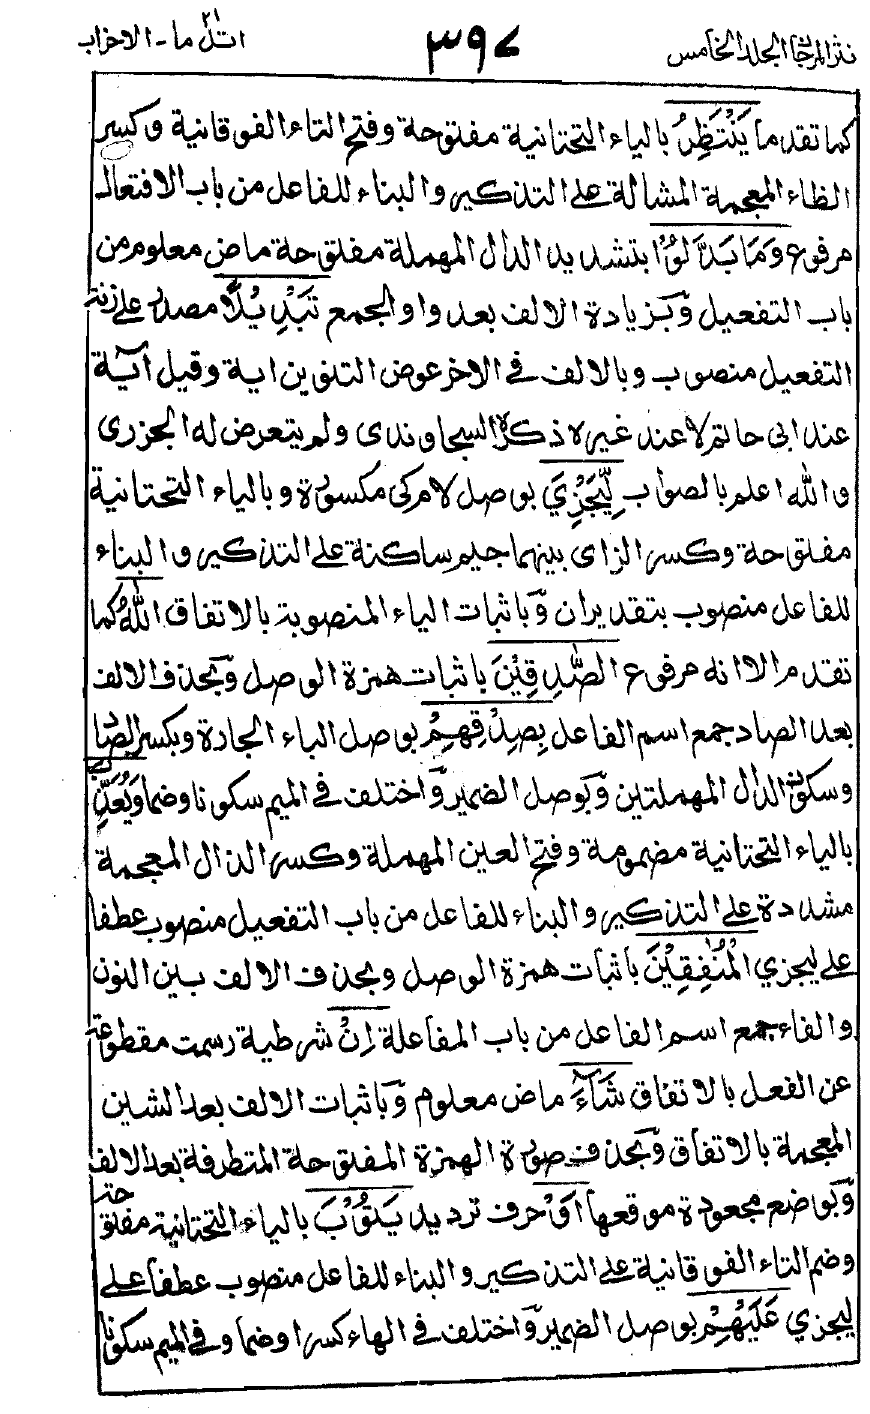 نثر المرجان المجلد الخامس ٣٩٧ اتل ما - ٢١ الاحزاب
كما تقدم ما يَنْتَظِرُ بالياء التحتانية مفتوحة وفتح التاء الفوقانية وكسر
الظاء المعجمة المشالة على التذكير والبناء للفاعل من باب الافتعال
مرفوع وَمَا بَدَّلُوْا بتشديد الدال المهملة مفتوحة ماض معلوم من
باب التفعيل وبزيادة الالف بعد واو الجمع تَبْدِيْلًا مصدر على زنة
التفعيل منصوب وبالالف في الاخر عوض التنوين اية وقيل آية
عند ابى حاتم لا عند غيره ذكره السجاوندى ولم يتعرض له الجزرى
والله اعلم بالصواب لِّيَجْزِيَ بوصل لام كى مكسورة وبالياء التحتانية
مفتوحة وكسر الزاى بينهما جيم ساكنة على التذكير والبناء
للفاعل منصوب بتقدير ان وباثبات الياء المنصوبة بالاتفاق اللّٰهُ كما
تقدم الا انه مرفوع الصّٰدِقِيْنَ باثبات همزة الوصل وبحذف الالف
بعد الصاد جمع اسم الفاعل بِصِدْقِهِمْ بوصل الباء الجارة وبكسر الصاد
وسكون الدال المهملتين وبوصل الضمير واختلف في الميم سكونا وضما وَيُعَذِّبَ
بالياء التحتانية مضمومة وفتح العين المهملة وكسر الذال المعجمة
مشددة على التذكير والبناء للفاعل من باب التفعيل منصوب عطفا
على ليجزي الْمُنٰفِقِيْنَ باثبات همزة الوصل وبحذف الالف بين النون
والفاء جمع اسم الفاعل من باب المفاعلة اِنْ شرطية رسمت مقطوعة
عن الفعل بالاتفاق شَآءَ ماض معلوم وباثبات الالف بعد الشين
المعجمة بالاتفاق وبحذف صورة الهمزة المفتوحة المتطرفة بعد الالف
وبوضع مجعودة موقعها اَوْ حرف ترديد يَتُوْبَ بالياء التحتانية مفتوحة
وضم التاء الفوقانية على التذكير والبناء للفاعل منصوب عطفا على
ليجزي عَلَيْهِمْ بوصل الضمير واختلف في الهاء كسرا وضما وفي الميم سكونا